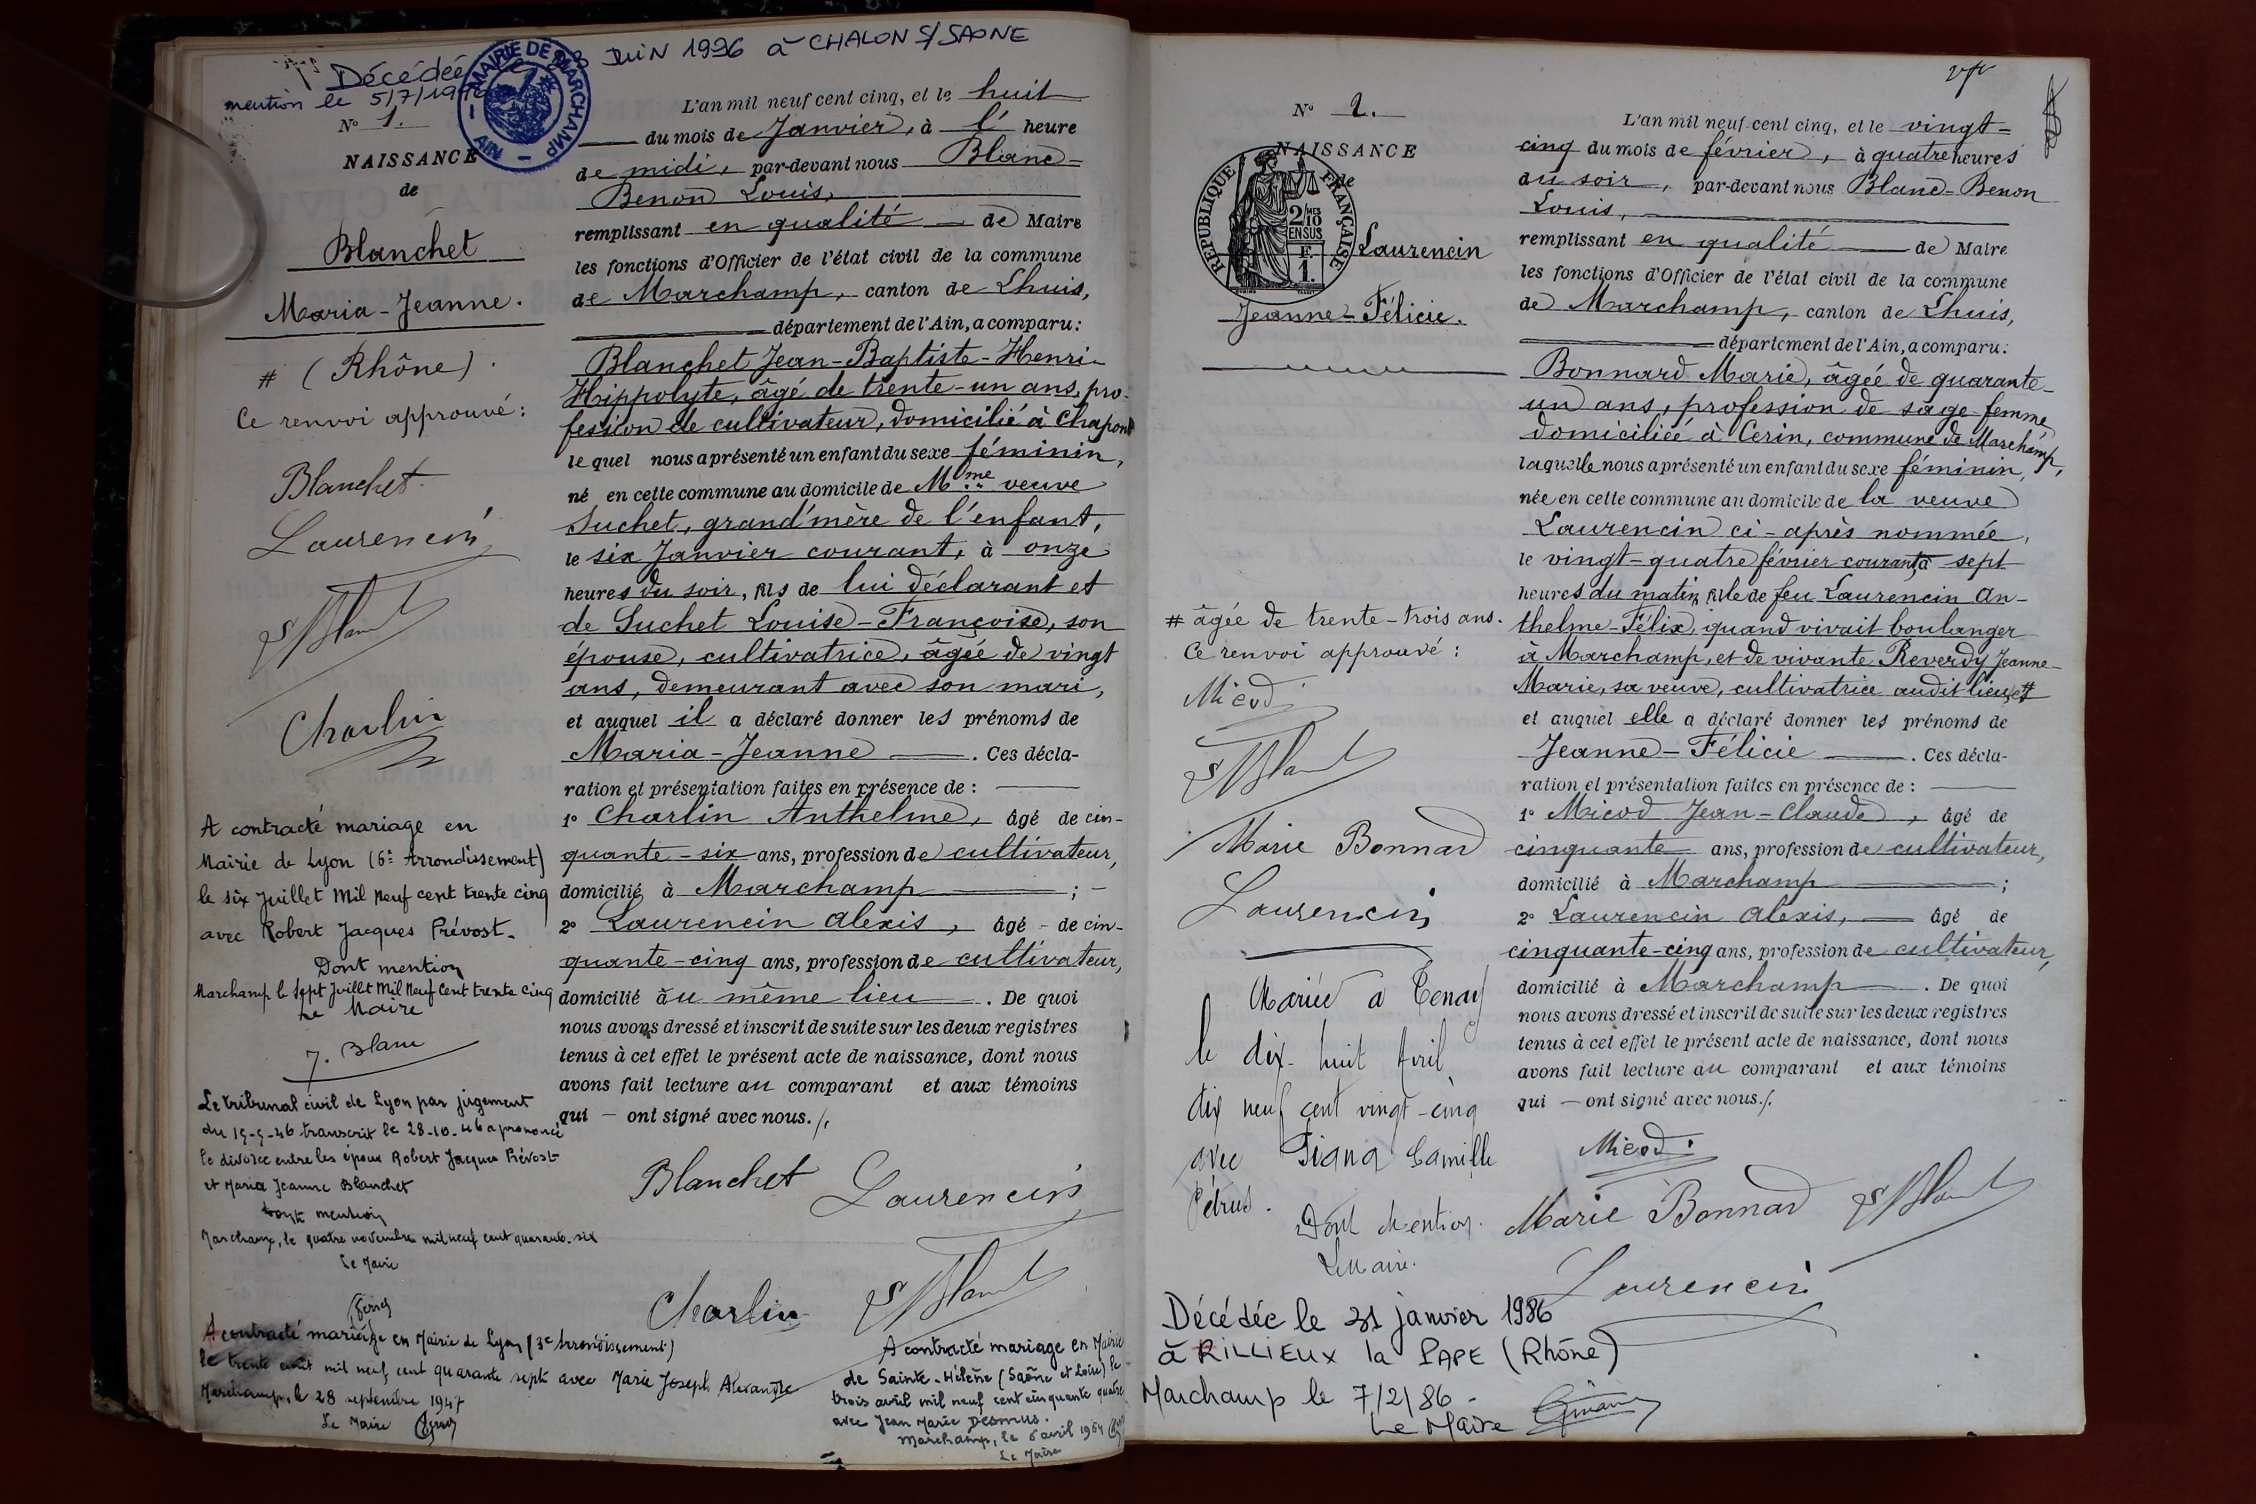 Décédée le 28 JUIN 1996 à CHALON S/SAONE
mention le 5/7/1996
MAIRIE DE MARCHAMP
- AIN -
N° 1.
NAISSANCE
de
Blanchet
Maria-Jeanne.
# (Rhône).
Ce renvoi approuvé:
Blanchet
Laurencin
Charlin
A contracté mariage en
Mairie de Lyon (6e Arrondissement)
le six Juillet Mil Neuf cent trente cinq
avec Robert Jacques Prévost.
Dont mention
Marchamp le Sept Juillet Mil Neuf Cent trente cinq
Le Maire
J. Blanc
Le tribunal civil de Lyon par jugement
du 15-5-46 transcrit le 28-10-46 a prononcé
le divorce entre les époux Robert Jacques Prévost
et Maria Jeanne Blanchet
dont mention
Marchamp, le quatre novembre mil neuf cent quarante-six
Le Maire
A contracté mariage en Mairie de Lyon (3e Arrondissement)
le trente août mil neuf cent quarante sept avec Marie Joseph Alexandre
Marchamp, le 28 septembre 1947
Le Maire
L'an mil neuf cent cinq, et le huit
du mois de Janvier, à l' heure
de midi, par-devant nous Blanc-
Benon Louis,
remplissant en qualité de Maire
les fonctions d'Officier de l'état civil de la commune
de Marchamp, canton de Lhuis,
département de l'Ain, a comparu:
Blanchet Jean-Baptiste-Henri-
Hippolyte, âgé de trente-un ans, pro-
fession de cultivateur, domicilié à Chapon
le quel nous a présenté un enfant du sexe féminin,
né en cette commune au domicile de Mme veuve
Suchet, grand'mère de l'enfant,
le six Janvier courant, à onze
heures du soir, fils de lui déclarant et
de Suchet Louise-Françoise, son
épouse, cultivatrice, âgée de vingt
ans, demeurant avec son mari,
et auquel il a déclaré donner les prénoms de
Maria-Jeanne. Ces décla-
ration et présentation faites en présence de :
1° Charlin Anthelme, âgé de cin-
quante-six ans, profession de cultivateur,
domicilié à Marchamp ; -
2° Laurencin Alexis, âgé - de cin-
quante-cinq ans, profession de cultivateur,
domicilié au même lieu. De quoi
nous avons dressé et inscrit de suite sur les deux registres
tenus à cet effet le présent acte de naissance, dont nous
avons fait lecture au comparant et aux témoins
qui - ont signé avec nous./.
Blanchet Laurencin
Charlin
A contracté mariage en Mairie
de Sainte-Hélène (Saône et Loire) le
trois avril mil neuf cent cinquante quatre
avec Jean Marie Desmus.
Marchamp, le 6 avril 1954
Le Maire
N° 2.
NAISSANCE
de
REPUBLIQUE FRANÇAISE
2/10MES
EN SUS
F.
1.
Laurencin
Jeanne-Félicie.
# âgée de trente-trois ans.
Ce renvoi approuvé :
Micod
Marie Bonnard
Laurencin
Mariée à Tenay
le dix-huit Avril
dix neuf cent vingt-cinq
avec Camille
Pétrus.
Dont mention.
Le Maire.
Décédée le 31 janvier 1986
à RILLIEUX la PAPE (Rhône)
Marchamp le 7/2/86 -
Le Maire
L'an mil neuf cent cinq, et le vingt-
cinq du mois de février, à quatre heures
du soir, par-devant nous Blanc-Benon
Louis,
remplissant en qualité de Maire
les fonctions d'Officier de l'état civil de la commune
de Marchamp, canton de Lhuis,
département de l'Ain, a comparu:
Bonnard Marie, âgée de quarante-
un ans, profession de sage-femme,
domiciliée à Cerin, commune de Marchamp,
laquelle nous a présenté un enfant du sexe féminin,
née en cette commune au domicile de la veuve
Laurencin ci-après nommée,
le vingt-quatre février courant, à sept
heures du matin, fille de feu Laurencin An-
thelme-Félix, quand vivait boulanger
à Marchamp, et de vivante Reverdy Jeanne-
Marie, sa veuve, cultivatrice audit lieu, #
et auquel elle a déclaré donner les prénoms de
Jeanne-Félicie. Ces décla-
ration et présentation faites en présence de :
1° Micod Jean-Claude, âgé de
cinquante ans, profession de cultivateur,
domicilié à Marchamp ;
2° Laurencin Alexis, âgé de
cinquante-cinq ans, profession de cultivateur,
domicilié à Marchamp. De quoi
nous avons dressé et inscrit de suite sur les deux registres
tenus à cet effet le présent acte de naissance, dont nous
avons fait lecture au comparant et aux témoins
qui - ont signé avec nous./.
Micod
Marie Bonnard
Laurencin